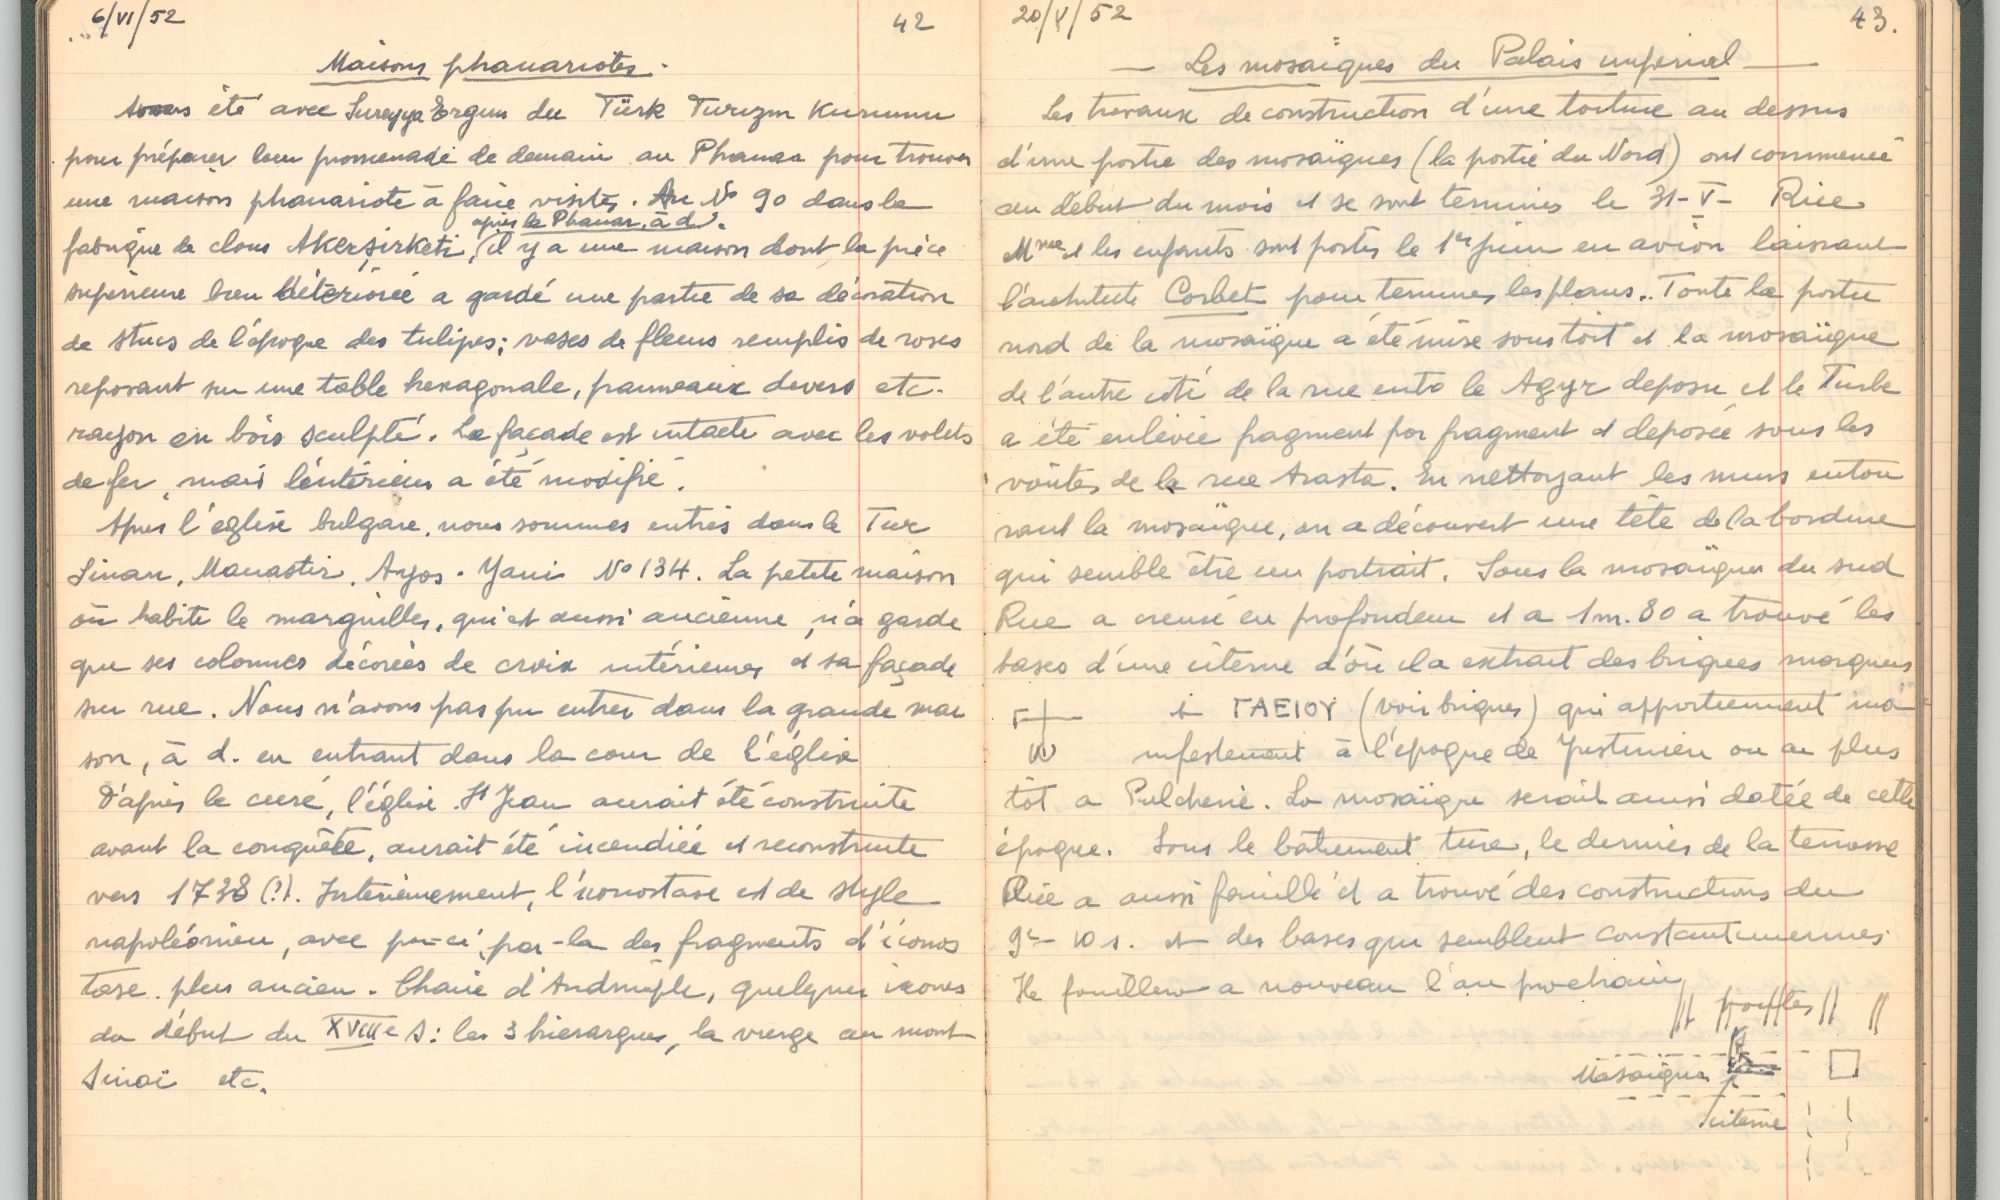 6/VI/52
42
Maisons phanariotes.
été avec Sureyya Ergun du Türk Turizm Kurumu
pour préparer leur promenade de demain au Phanar pour trouver
une maison phanariote à faire visiter. Au No 90 dans la
après le Phanar, à d.
fabrique de clous Akerşirketi, il y a une maison dont la pièce
supérieure bien détériorée a gardé une partie de sa décoration
de stucs de l'époque des tulipes; vases de fleurs remplis de roses
reposant sur une table hexagonale, panneaux divers etc.
rayon en bois sculpté. La façade est intacte avec les volets
de fer, mais l'intérieur a été modifié.
Après l'église bulgare, nous sommes entrés dans le Tur
Sinan, Manastir, Ayos. Yani No 134. La petite maison
où habite le marguiller, qui est aussi ancienne, n'a gardé
que ses colonnes décorées de croix intérieures et sa façade
sur rue. Nous n'avons pas pu entrer dans la grande mai
son, à d. en entrant dans la cour de l'église
D'après le curé, l'église St Jean aurait été construite
avant la conquête, aurait été incendiée et reconstruite
vers 1738 (?). Intérieurement, l'iconostase est de style
napoléonien, avec par-ci, par-la des fragments d'iconos
tase plus ancien. Chaire d'Andrinople, quelques icones
du début du XVIIIe s: les 3 hierarques, la vierge au mont
Sinai etc.
20/V/52
43.
— Les mosaïques du Palais impérial —
Les travaux de construction d'une toiture au dessus
d'une partie des mosaïques (la partie du Nord) ont commencé
au début du mois et se sont terminés le 31-V- Rice
Mme et les enfants sont partis le 1er juin en avion laissant
l'architecte Corbet pour terminer les plans. Toute la partie
nord de la mosaïque a été mise sous toit et la mosaïque
de l'autre coté de la rue entre le Agyr deposu et le Turbe
a été enlevée fragment par fragment et déposée sous les
voûtes de la rue Arasta. En nettoyant les murs entou
rant la mosaïque, on a découvert une tête de la bordure
qui semble être un portrait. Sous la mosaïque du sud
Rice a creusé en profondeur et a 1m.80 a trouvé les
bases d'une citerne d'où il a extrait des briques marquées
et ΓΑΕΙΟΥ (voir briques) qui appartiennent ma
nifestement à l'époque de Justinien ou au plus
tôt a Pulcherie. La mosaïque serait aussi datée de cette
époque. Sous le bâtiment turc, le dernier de la terrasse
Rice a aussi fouillé et a trouvé des constructions du
9e-10 s. et des bases qui semblent constantiniennes.
Il fouillera a nouveau l'an prochain
Mosaïque
citerne